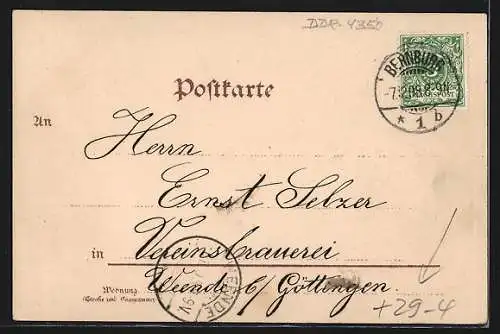 DDR 4350
BERNBURG
* 1 b
Postkarte
An
Herrn
Ernst Selzer
in Vereinsbrauerei
Weende b/ Göttingen
WEENDE
Wohnung
(Straße und Hausnummer)
+29-4